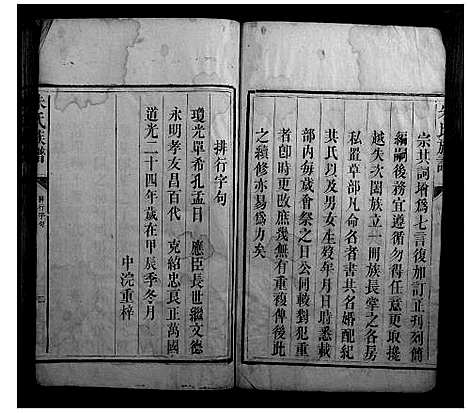 宗其詞增為七言復加訂正刊列簡
編嗣後務宜遵循勿得任意更取攙
越失次闔族立一明族長掌之各房
私置草部凡命名者書其名婚配紀
其氏以及男女生歿年月日時悉載
部內每歲會祭之日公同較對犯重
者卽時更改庶幾無有重複俾後此
之續修亦易為力矣
排行字句
瓊光單希孔孟日　應臣長世繼文德
永明孝友昌百代　克紹忠良正萬國
道光二十四年歲在甲辰季冬月
中浣重梓
氏族譜
排行字句